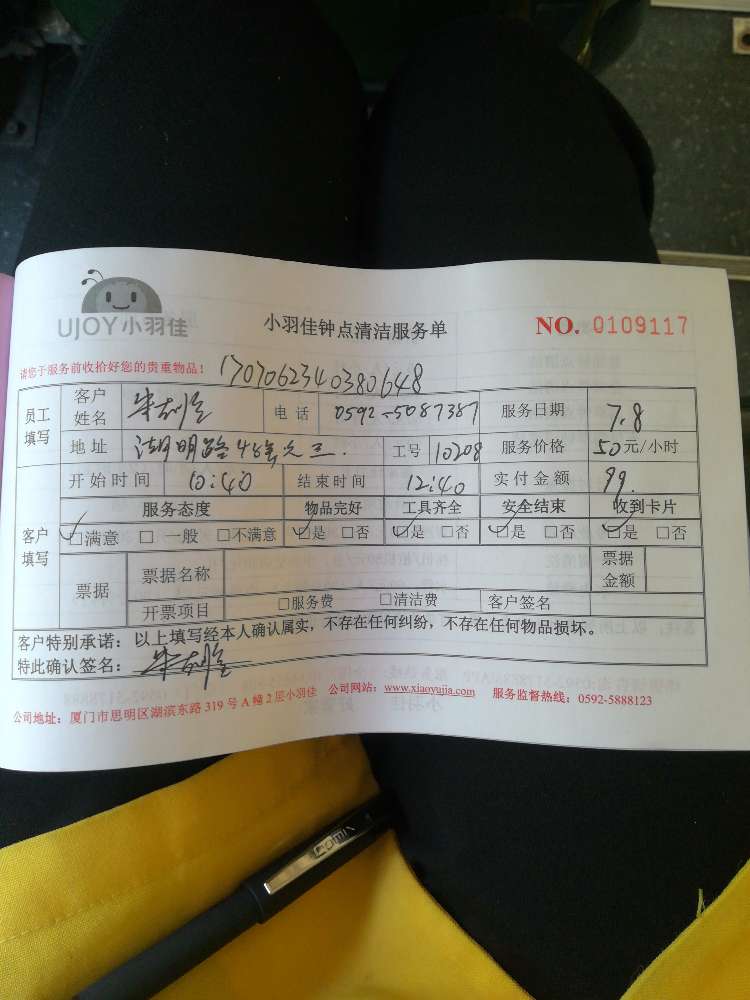 UJOY小羽佳
小羽佳钟点清洁服务单
NO. 0109117
请您于服务前收拾好您的贵重物品！
1707062340380648
员工填写 客户姓名 电话 0592-5087387 服务日期 7.8
地址 湖明路 工号 10208 服务价格 50元/小时
开始时间 10:40 结束时间 12:40 实付金额 99.
客户填写 服务态度 物品完好 工具齐全 安全结束 收到卡片
☑满意 □一般 □不满意 ☑是 □否 ☑是 □否 ☑是 □否 ☑是 □否
票据 票据名称 票据金额
开票项目 □服务费 □清洁费 客户签名
客户特别承诺：以上填写经本人确认属实，不存在任何纠纷，不存在任何物品损坏。
特此确认签名：
公司地址：厦门市思明区湖滨东路319号A幢2层小羽佳 公司网站：www.xiaoyujia.com 服务监督热线：0592-5888123
comix